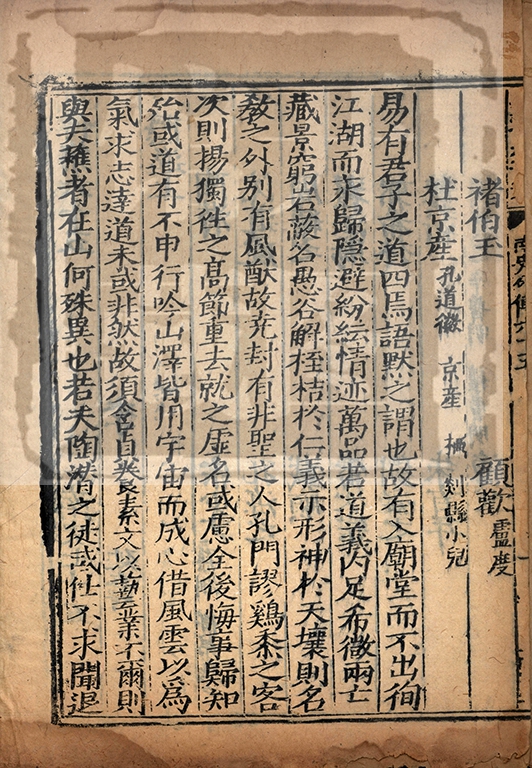 南史列傳六十五
褚伯玉　顧歡　盧度
杜京産　孔道徽　京産　栖　剡縣小兒
易有君子之道四焉語默之謂也故有入廟堂而不出徇
江湖而永歸隱避紛紜情迹萬品若道義内足希微兩亡
藏景窮岩蔽名愚谷解桎梏於仁義示形神於天壤則名
教之外别有風猷故堯封有非聖之人孔門謬鷄黍之客
次則揚獨徃之高節重去就之虚名或慮全後悔事歸知
殆或道有不申行吟山澤皆用宇宙而成心借風雲以爲
氣求志達道未或非然故須含貞養素文以藝業不爾則
與夫樵者在山何殊異也若夫陶潜之徒或仕不求聞退